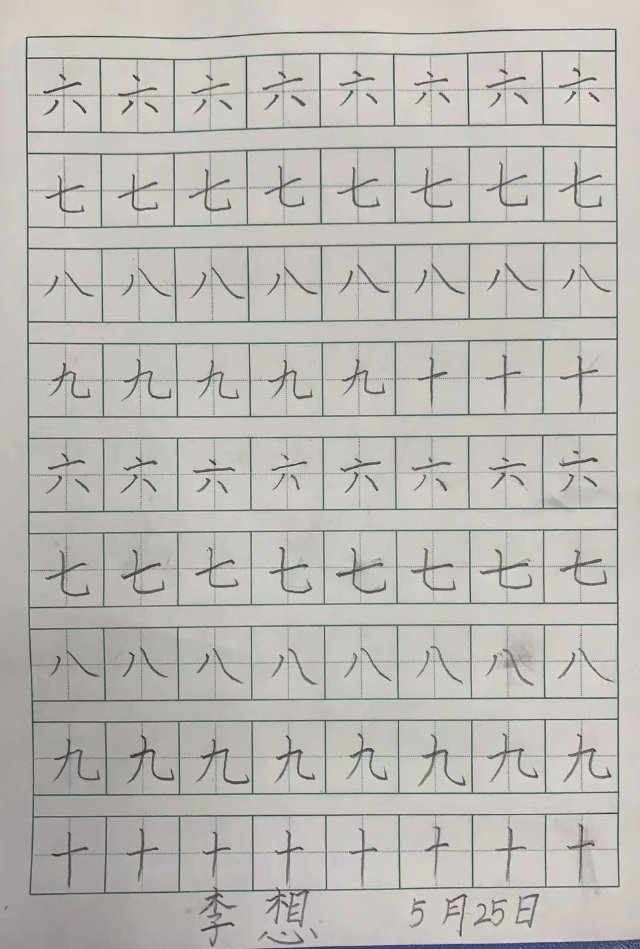 六六六六六六六六
七七七七七七七七
八八八八八八八八
九九九九九十十十
六六六六六六六六
七七七七七七七七
八八八八八八八八
九九九九九九九九
十十十十十十十十
李想 5月25日